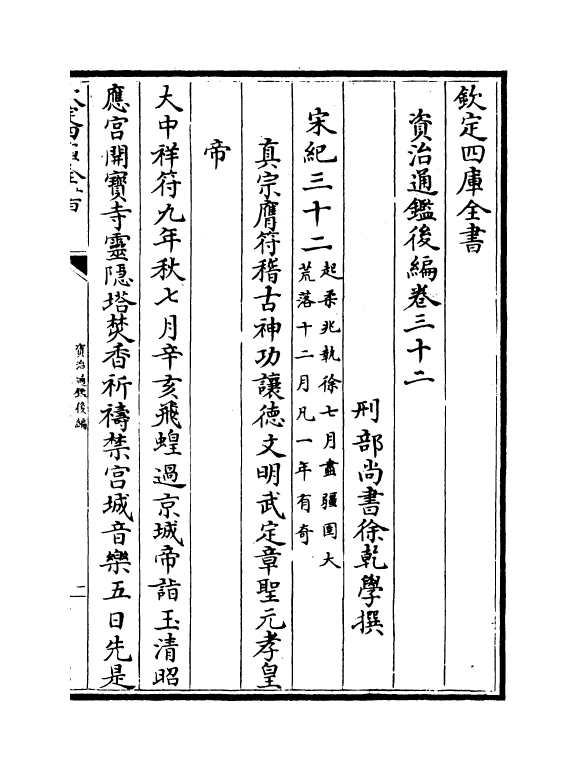 欽定四庫全書
資治通鑑後編卷三十二
刑部尚書徐乾學撰
宋紀三十二起柔兆執徐七月盡疆圉大
荒落十二月凡一年有奇
真宗膺符稽古神功讓徳文明武定章聖元孝皇
帝
大中祥符九年秋七月辛亥飛蝗過京城帝詣玉清昭
應宮開寶寺靈隱塔焚香祈禱禁宮城音樂五日先是
資治通鑑後編